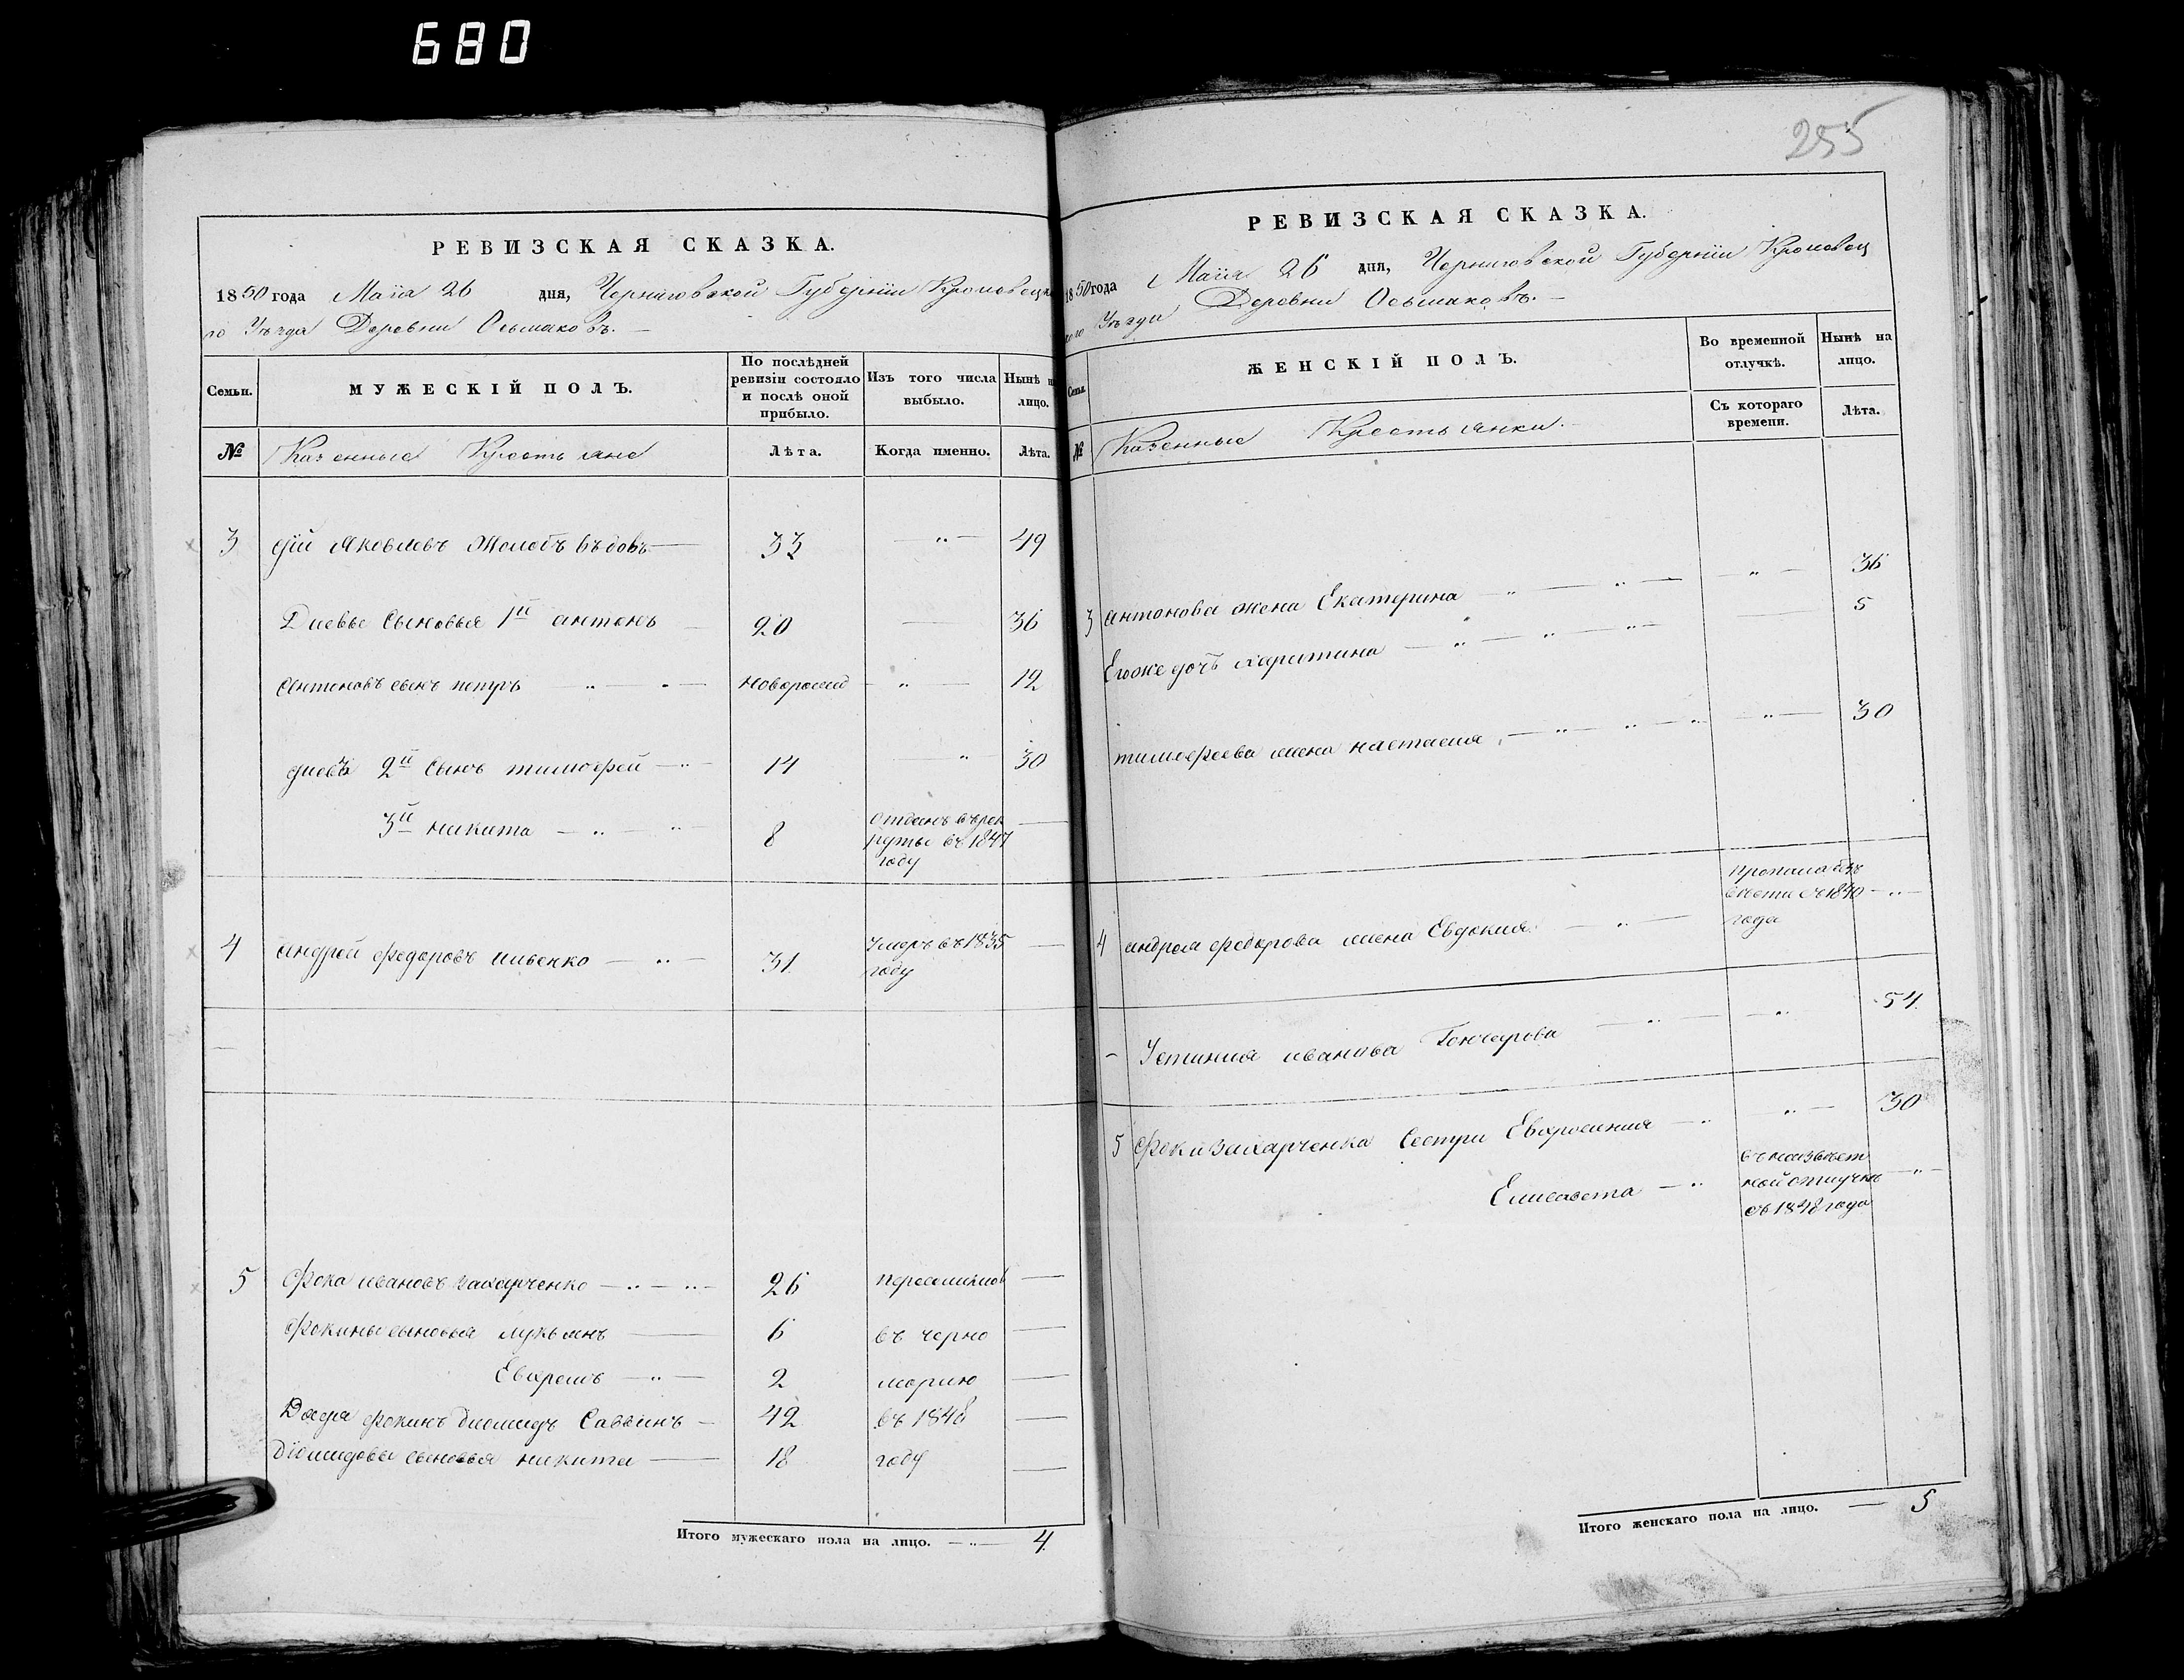 680
РЕВИЗСКАЯ СКАЗКА.
1850 года Маія 26 дня, Черниговской Губерніи Кролевецка
го Уѣзда Деревни Осьмаковъ.
Семьи. МУЖЕСКІЙ ПОЛЪ. По послѣдней ревизіи состояло и послѣ оной прибыло. Изъ того числа выбыло. Нынѣ на лицо.
№ Казенные Крестьяне Лѣта. Когда именно. Лѣта.
3 Яковлевъ 33 49
сыновья 1й антонъ 20 36
Антоновъ сынъ петръ новорожд 12
2й сынъ тимофей 14 30
3й никита 8 Отданъ в рек
руты въ 1847
году
4 андрей федоровъ ивенко 31 Умеръ въ 1835
году
5 Фока ивановъ захарченко 26 переселились
Фокины сыновья лукьянъ 6 въ черно
Ефремъ 2 морию
Дядя фокинъ диомидъ Саввинъ 42 въ 1848
Диомидовы сыновья никита 18 году
Итого мужескаго пола на лицо. 4
255
РЕВИЗСКАЯ СКАЗКА.
1850 года Маія 26 дня, Черниговской Губерніи Кролевец
каго Уѣзда Деревни Осьмаковъ.
Семьи. ЖЕНСКІЙ ПОЛЪ. Во временной отлучкѣ. Нынѣ на лицо.
№ Казенные Крестьянки. Съ котораго времени. Лѣта.
3 антонова жена Екатерина 36
Егоже дочь харитина 5
тимофеева жена настасия 30
4 андрея федорова жена Евдокия пропала безъ
вести съ 1840
года
Устиния иванова Гончарова 54
5 Фоки Захарченка Сестры Евфросиния 30
Елисавета въ неизвест
ной отлучке
съ 1848 года
Итого женскаго пола на лицо. 5